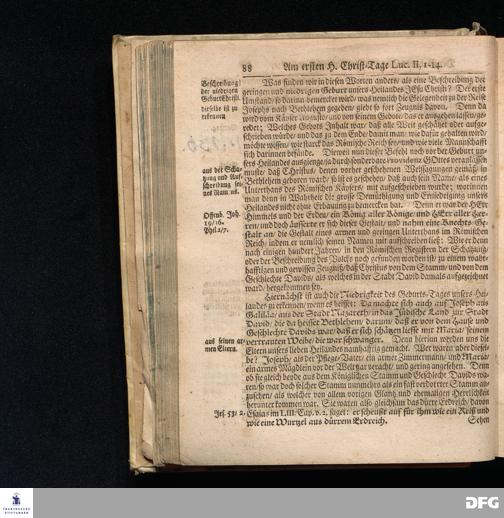 88 Am ersten H. Christ-Tage Luc. II, 1-14.
Beschreibung
der niedrigen
Geburt Christi.
dieselbe ist zu
erkennen
Was finden wir in diesen Worten anders als eine Beschreibung der
geringen und niedrigen Geburt unsers Heilandes JEsu Christi? Der erste
Umstand so darinn bemercket wird, was nemlich die Gelegenheit zu der Reise
Josephs nach Bethlehem gegeben, giebt so fort Zeugnis davon. Denn da
wird vom Käyser Augusto, und von seinem Gebote, das er ausgehen lassen, ge-
redet; Welches Gebots Inhalt war, daß alle Welt geschätzet oder aufge-
schrieben würde, und das zu dem Ende, damit man, wie dafür gehalten wird,
möchte wissen, wie starck das Römische Reich sey, und wie viele Mannschafft
sich darinnen befände. Dieweil nun dieser Befehl noch vor der Geburt un-
aus der Schä-
tzung und Auf-
schreibung sei-
nes Namens.
sers Heilandes ausgienge, ja durch sonderbare Providenz GOttes veranlassen
muste, daß Christus, denen vorher geschehenen Weissagungen gemäß, in
Bethlehem geboren ward, so ist es geschehen, daß auch sein Name, als eines
Unterthans des Römischen Käysers, mit aufgeschrieben wurde; worinnen
man denn in Wahrheit die grosse Demüthigung und Erniedrigung unsers
Heilandes nicht ohne Erbauung zu bemercken hat. Denn er war der HErr
Offenb. Joh.
19/16.
Phil. 2/7.
Himmels und der Erden, ein König aller Könige, und HErr aller Her-
ren, und doch äusserte er sich dieser Gestalt, und nahm eine Knechts-Ge-
stalt an, die Gestalt eines armen und geringen Unterthans im Römischen
Reich, indem er nemlich seinen Namen mit aufschreiben ließ. Wie er denn
nach einigen hundert Jahren, in den Römischen Registern der Schatzung,
oder der Beschreibung des Volcks noch gefunden worden ist, zu einem wahr-
hafftigen und gewissen Zeugnis, daß Christus von dem Stamm, und von dem
Geschlechte Davids, als welches in der Stadt Davids damals aufgezeichnet
ward, hergekommen sey.
Hiernächst ist auch die Niedrigkeit des Geburts-Tages unsers Hei-
landes zu erkennen, wenn es heisset: Da machte sich auch auf Joseph aus
Galiläa, aus der Stadt Nazareth, in das Jüdische Land, zur Stadt
David, die da heisset Bethlehem, darum, daß er von dem Hause und
Geschlechte Davids war, daß er sich schätzen liesse mit Maria, seinem
aus seinen ar-
men Eltern.
vertrauten Weibe, die war schwanger. Denn hierinn werden uns die
Eltern unsers lieben Heilandes namhafftig gemacht. Wer waren aber diesel-
be? Joseph, als der Pflege-Vater, ein armer Zimmermann, und Maria,
ein armes Mägdlein vor der Welt gar veracht, und gering angesehen. Denn
ob sie gleich beyde aus dem Königlichen Stamm und Geschlecht Davids wa-
ren, so war doch solcher Stamm nunmehro als ein fast verdorreter Stamm an-
zusehen, als welcher von allem vorigen Glantz und ehemaligen Herrlichkeit
herunter kommen war. Sie waren also gleichsam das dürre Erdreich, davon
Jes. 53, 2.
Esaias im LIII. Cap. v. 2. saget: er scheust auf für ihm wie ein Reiß und
wie eine Wurtzel aus dürrem Erdreich.
Sehen
FRANCKESCHE
STIFTUNGEN
DFG